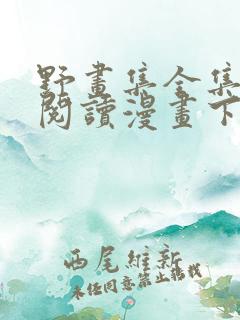 野畫集全集
閱讀漫畫下
西尾維新
未經同意禁止轉載